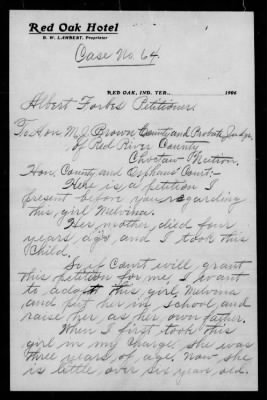 Red Oak Hotel
B. W. LAMBERT, Proprietor
Case No. 64.
RED OAK, IND. TER., 1906
Albert Forbes Petitioner.
To Hon M. J. Brown County and Probate Judge,
of Red River County
Choctaw Nation.
Hon. County and Orphans Court:-
Here is a petition I
present before you regarding
this girl Melvina.
Her mother died four
years ago and I took this
Child.
So if Court will grant
this petition for me I want
to adopt this girl Melvina
and put her in school and
raise her as her own father.
When I first took this
girl in my charge she was
three years of age. Now she
is little over six years old.